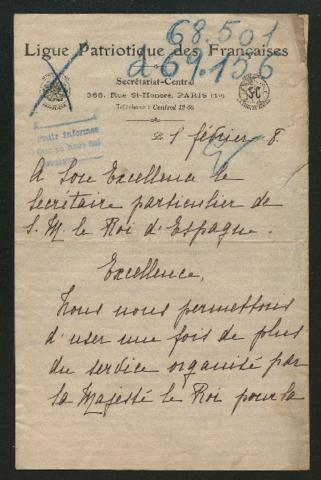 68.501
d 69.156
Ligue Patriotique des Françaises
Secrétariat-Central
368, Rue St-Honoré, PARIS (1er)
Téléphone : Central 12-69
SC
Petit Informes
2 1 février 8.
A Son Excellence le
Secrétaire particulier de
S. M. le Roi d'Espagne.
Excellence,
Nous nous permettons
d'user une fois de plus
du service organisé par
sa Majesté le Roi pour la